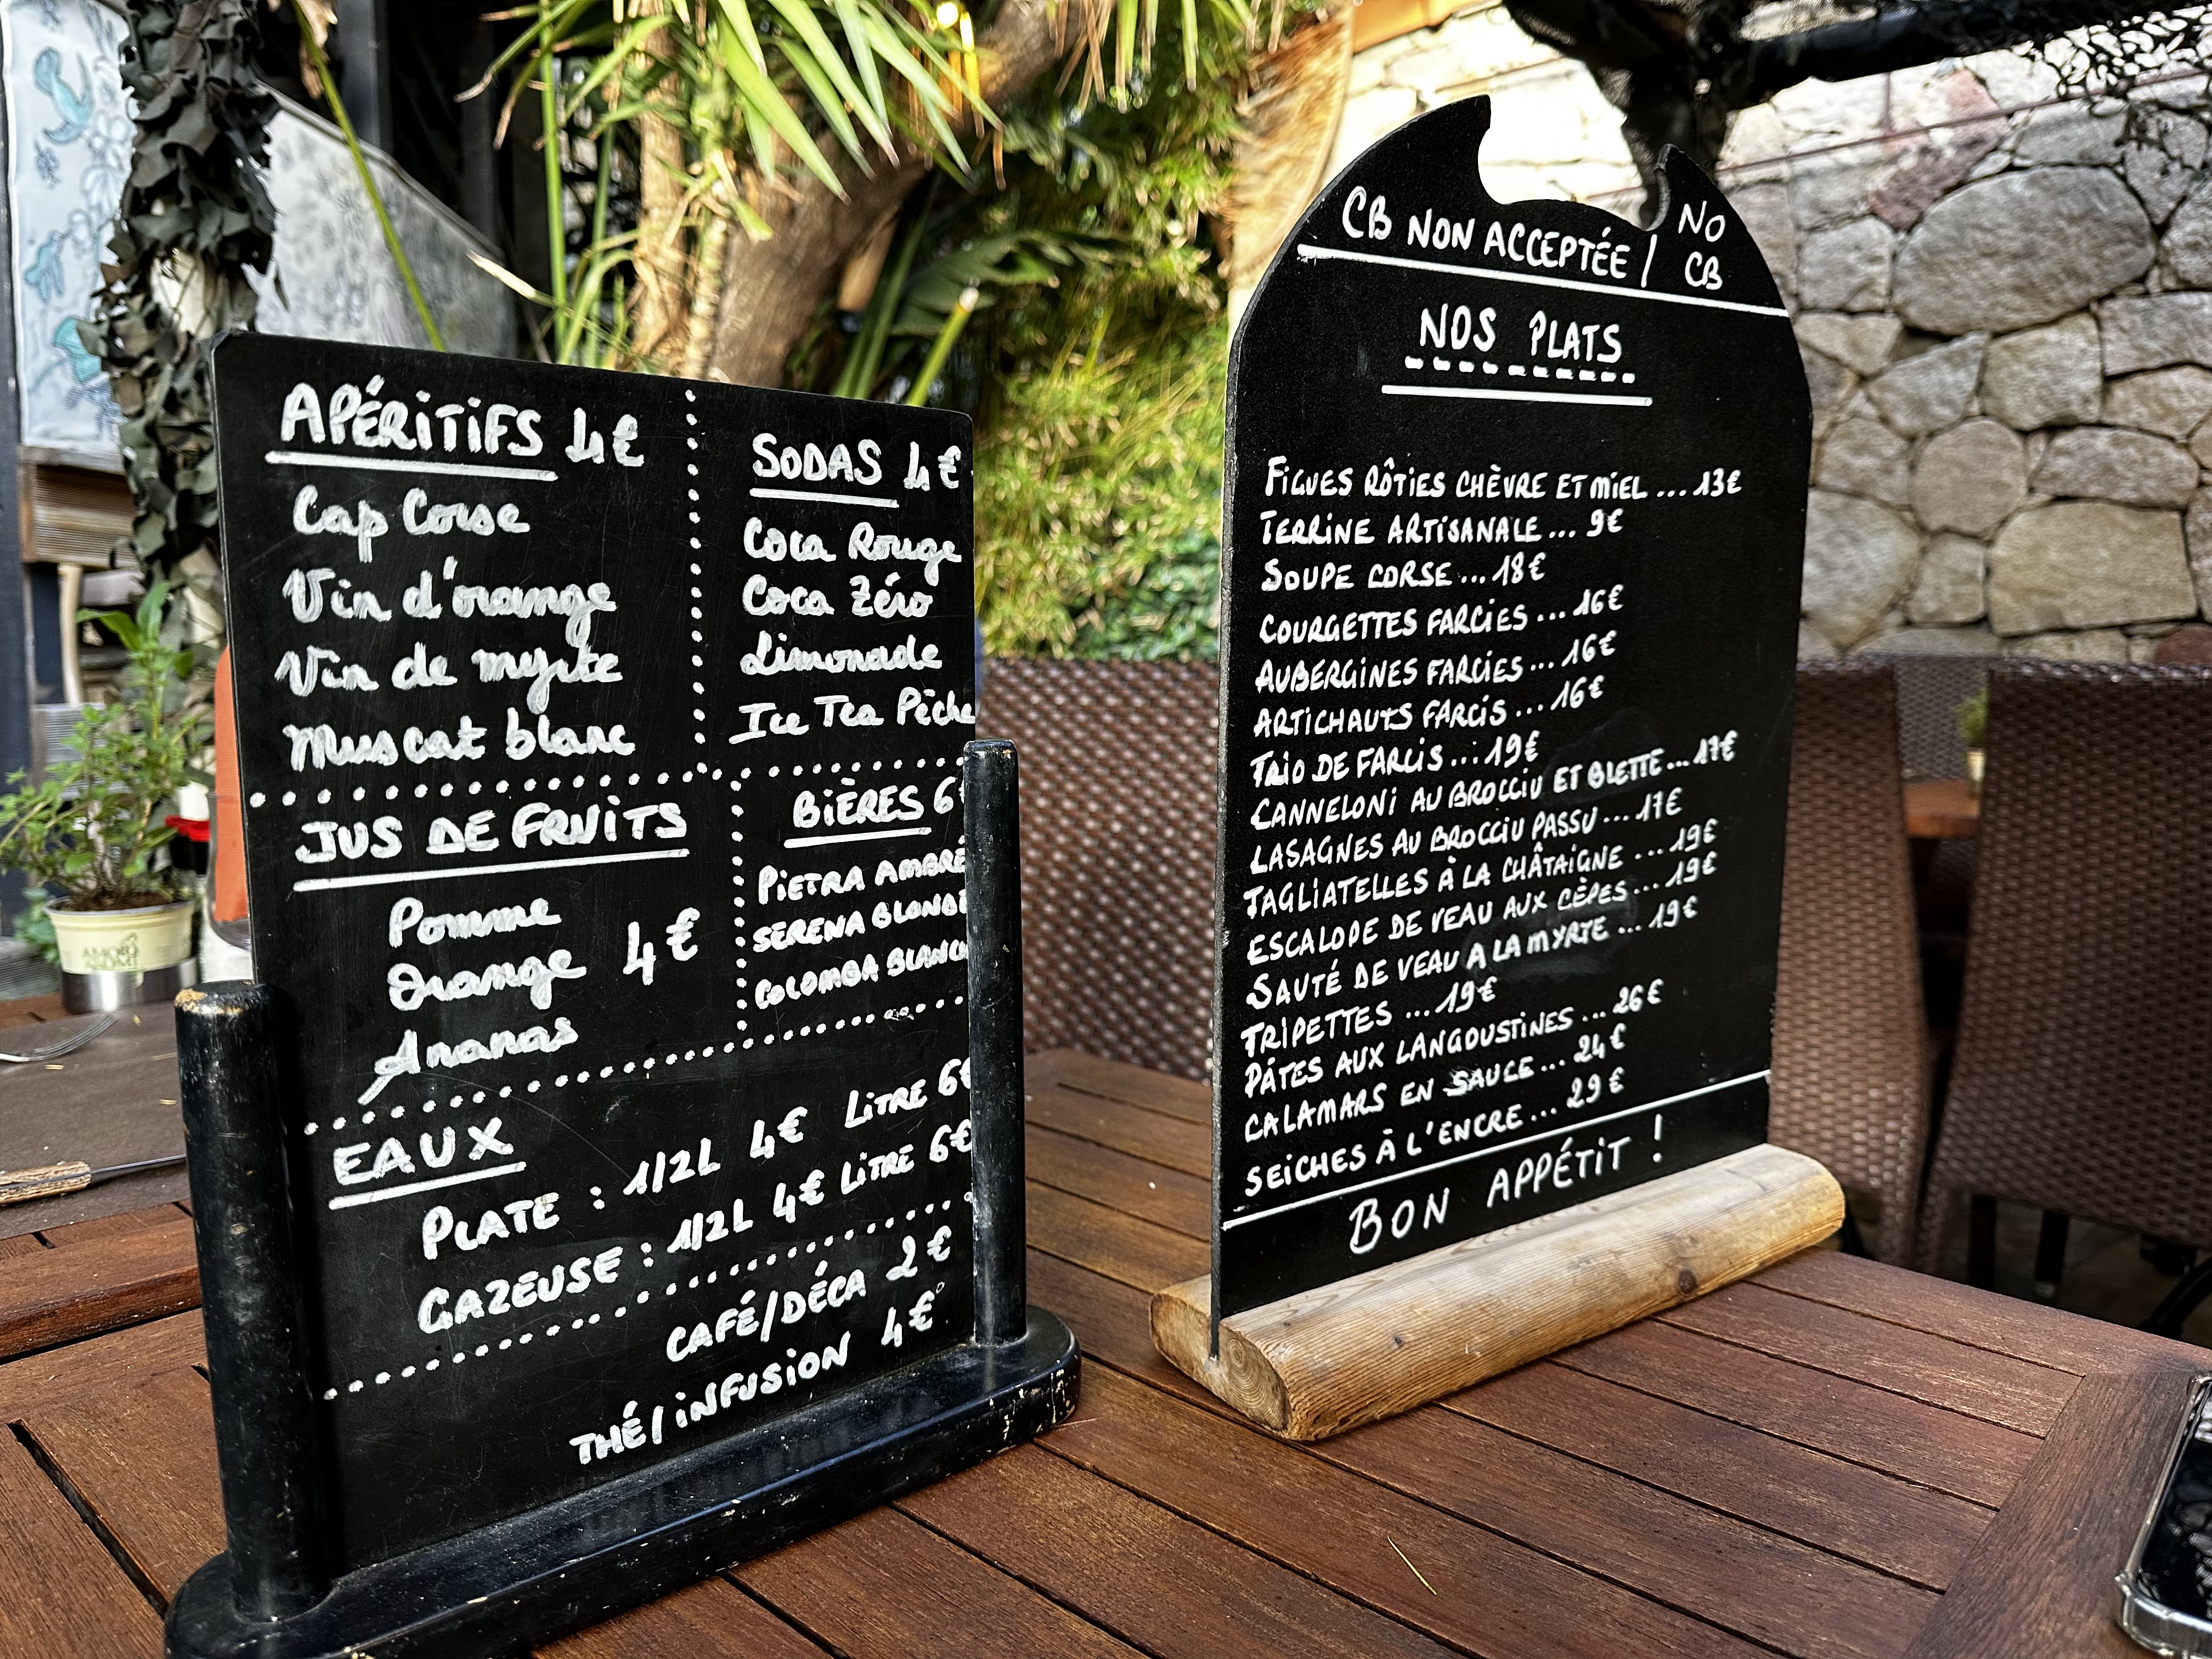 APÉRITIFS 4€
Cap Corse
Vin d'orange
Vin de myrte
Muscat blanc
SODAS 4€
Coca Rouge
Coca Zéro
Limonade
Ice Tea Pêche
JUS DE FRUITS
Pomme
Orange 4€
Ananas
BIÈRES 6€
PIETRA AMBRÉ
SERENA BLONDE
COLOMBA BLANCH
EAUX
PLATE : 1/2L 4€ LITRE 6€
GAZEUSE : 1/2L 4€ LITRE 6€
CAFÉ/DÉCA 2€
THÉ/INFUSION 4€
CB NON ACCEPTÉE / NO CB
NOS PLATS
FIGUES RÔTIES CHÈVRE ET MIEL ... 13€
TERRINE ARTISANALE ... 9€
SOUPE CORSE ... 18€
COURGETTES FARCIES ... 16€
AUBERGINES FARCIES ... 16€
ARTICHAUTS FARCIS ... 16€
TRIO DE FARCIS ... 19€
CANNELONI AU BROCCIU ET BLETTE ... 17€
LASAGNES AU BROCCIU PASSU ... 17€
TAGLIATELLES À LA CHÂTAIGNE ... 19€
ESCALOPE DE VEAU AUX CÈPES ... 19€
SAUTÉ DE VEAU A LA MYRTE ... 19€
TRIPETTES ... 19€
PÂTES AUX LANGOUSTINES ... 26€
CALAMARS EN SAUCE ... 24€
SEICHES À L'ENCRE ... 29€
BON APPÉTIT !